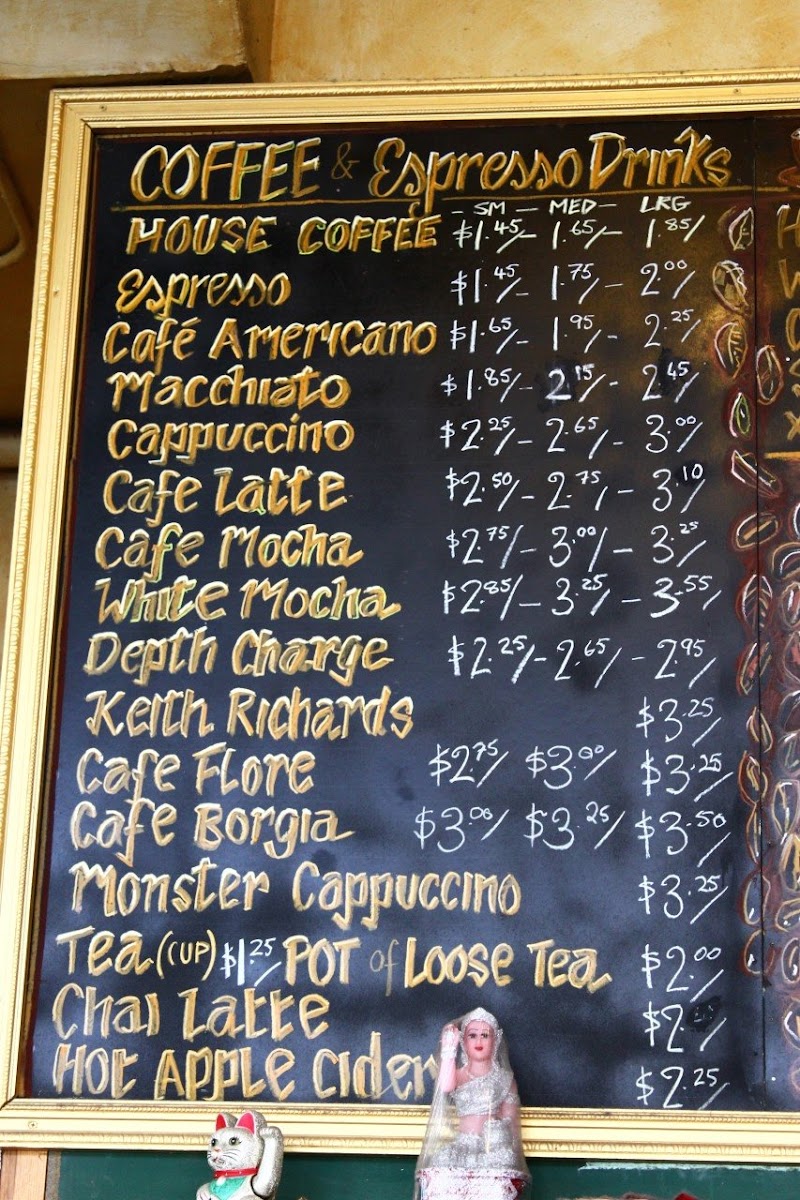 COFFEE & Espresso Drinks
- SM - MED - LRG
HOUSE COFFEE $1.45/- 1.65/- 1.85/
Espresso $1.45/- 1.75/- 2.00/
Café Americano $1.65/- 1.95/- 2.25/
Macchiato $1.85/- 2.15/- 2.45/
Cappuccino $2.25/- 2.65/- 3.00/
Cafe Latte $2.50/- 2.75/- 3.10/
Cafe Mocha $2.75/- 3.00/- 3.25/
White Mocha $2.85/- 3.25/- 3.55/
Depth Charge $2.25/- 2.65/- 2.95/
Keith Richards $3.25/
Cafe Flore $2.75/ $3.00/ $3.25/
Cafe Borgia $3.00/ $3.25/ $3.50/
Monster Cappuccino $3.25/
Tea (CUP) $1.25/ POT of Loose Tea $2.00/
Chai Latte $2.
Hot Apple Cider $2.25/